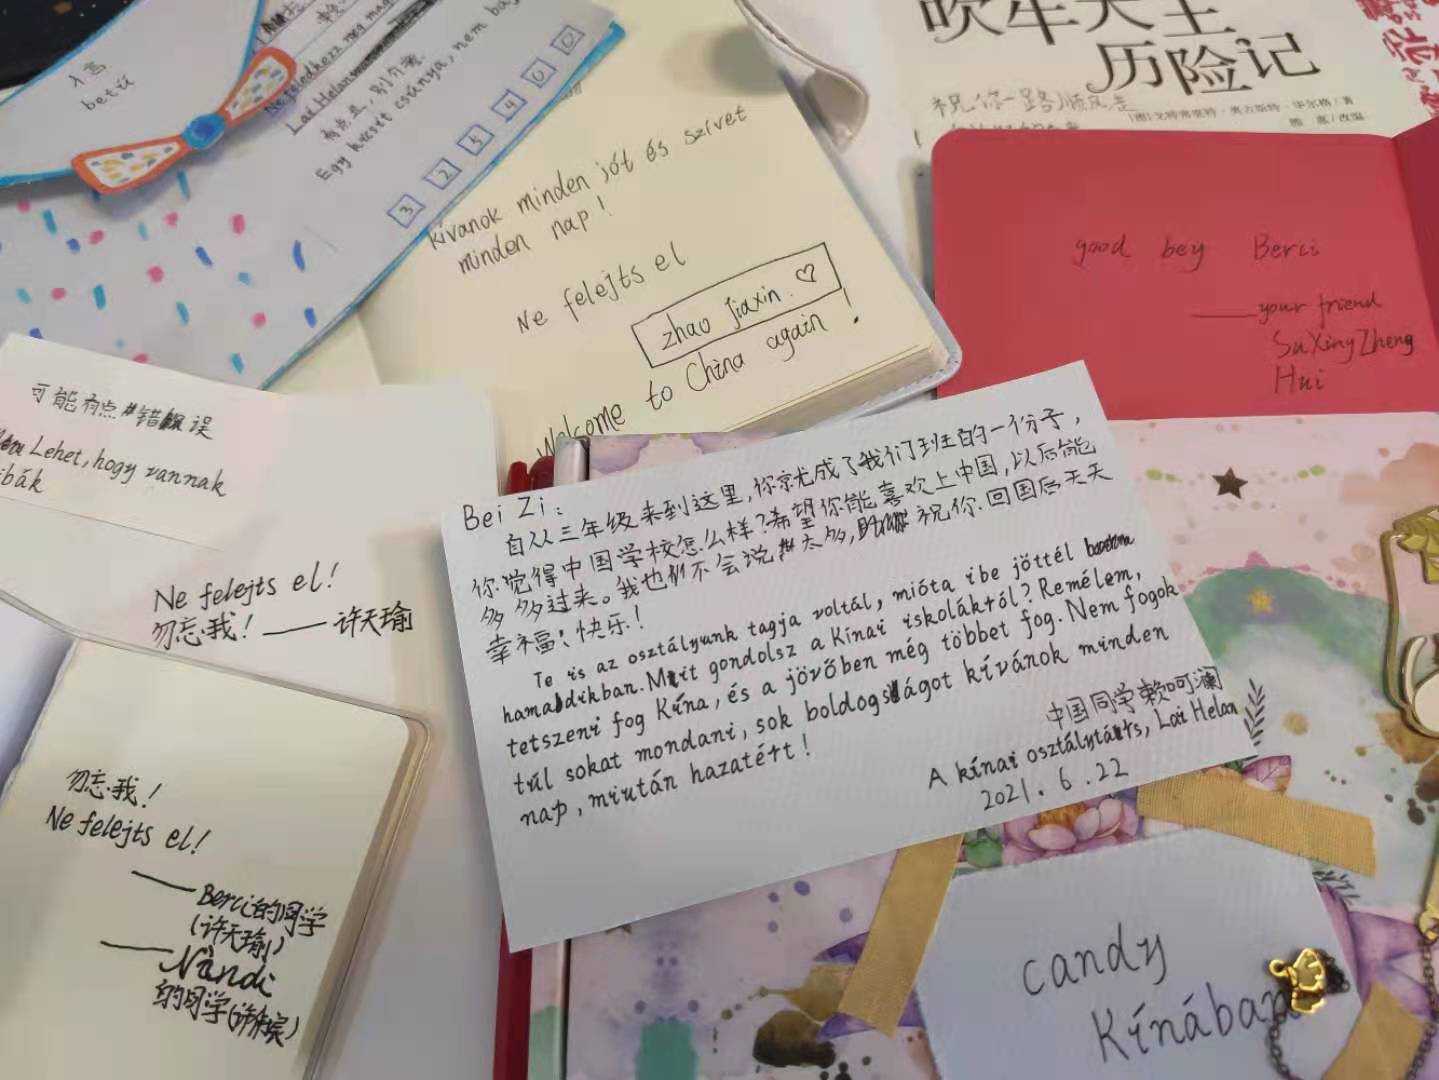 betű
Ne feledkezz meg
Lai Helan
有点丑,别介意
Egy kicsit csúnya, nem
3 2 5 4 0 0
kívanok minden jót és szívet
minden nap!
Ne felejts el
zhao jiaxin. ♡
Welcome to China again!
吹牛大王
历险记
祝你一路顺风
good bey Berci
——your friend
SuXingZheng
Hui
可能有点错误
Lehet, hogy vannak
ibák
Ne felejts el!
勿忘我! —— 许天瑜
勿忘我!
Ne felejts el!
——Berci的同学
(许天瑜)
——Nándi
的同学
Bei Zi:
自从三年级来到这里,你就成了我们班的一份子,
你觉得中国学校怎么样?希望你能喜欢上中国,以后能
多多过来。我也不会说太多,祝你回国后天天
幸福!快乐!
Te is az osztályunk tagja voltál, mióta ibe jöttél
hamadikban. Mit gondolsz a Kínai iskoláktól? Remélem,
tetszeni fog Kína, és a jövőben még többet fog. Nem fogok
túl sokat mondani, sok boldogságot kívánok minden
nap, miután hazatért!
中国同学 赖呵澜
A kínai osztálytárs, Lai Helan
2021.6.22
candy
Kínában